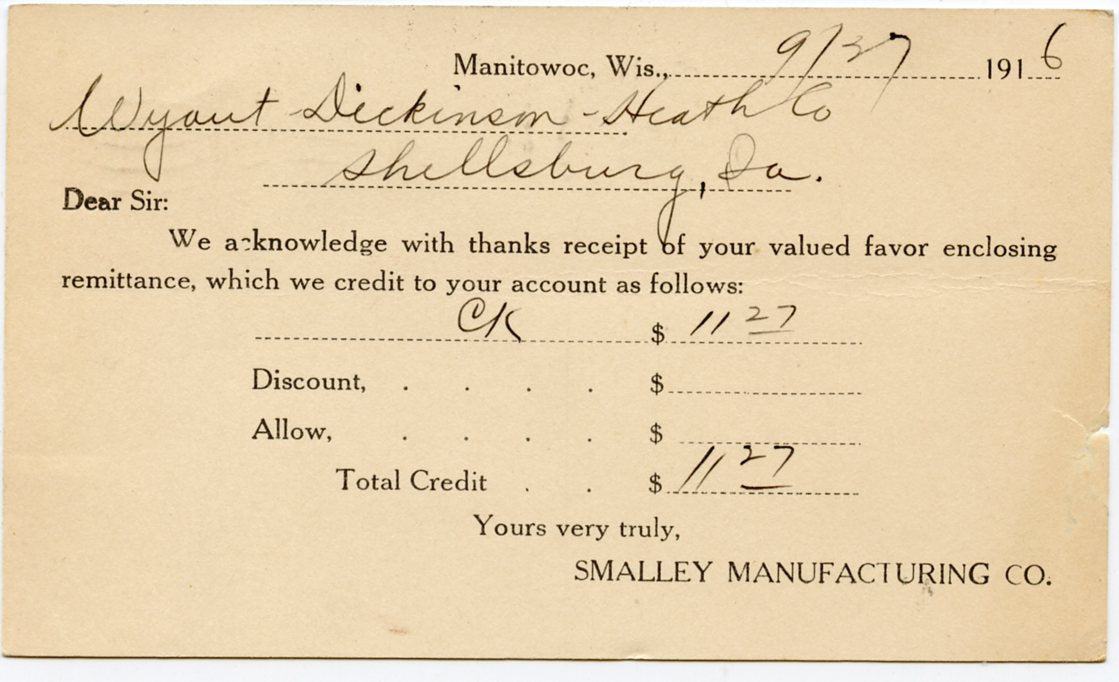 Manitowoc, Wis., 9/27 1916
Wyant-Dickinson-Heath Co
Shellsburg, Ia.
Dear Sir:
We acknowledge with thanks receipt of your valued favor enclosing
remittance, which we credit to your account as follows:
CK $ 11 27
Discount, . . . . $
Allow, . . . . $
Total Credit . . $ 11 27
Yours very truly,
SMALLEY MANUFACTURING CO.